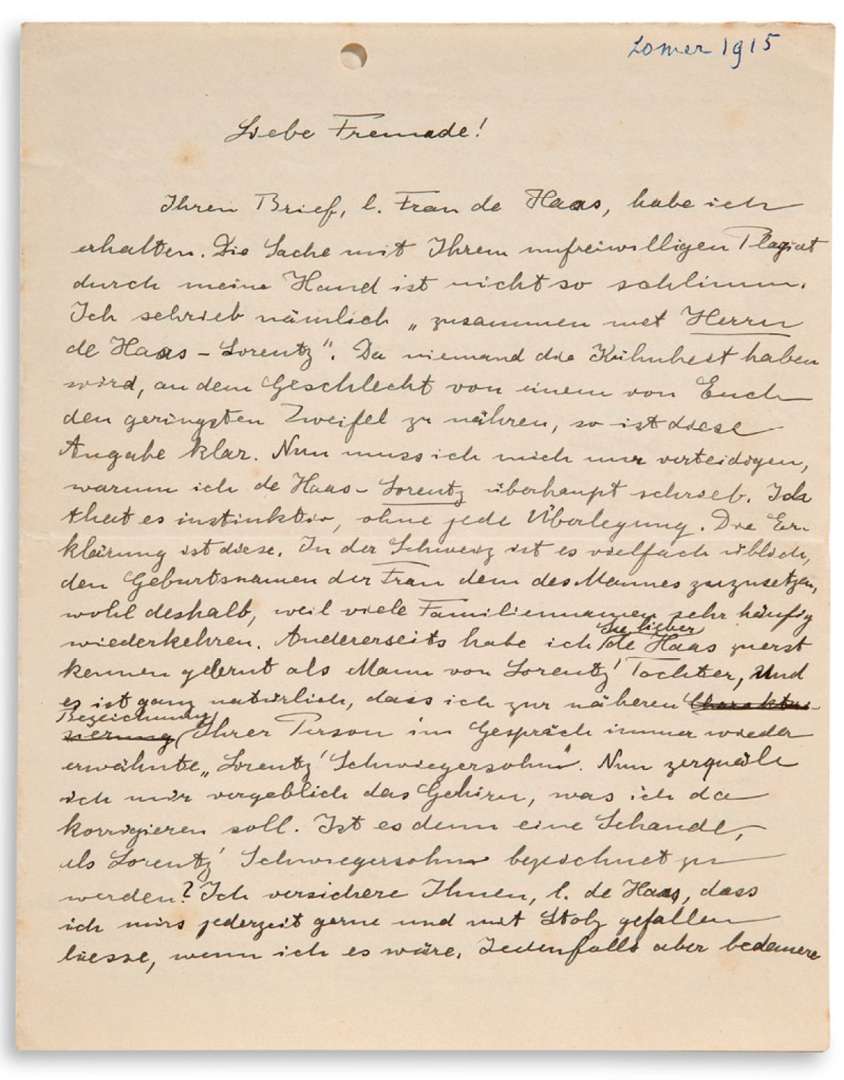 Zomer 1915
Liebe Freunde!
Ihren Brief, l. Frau de Haas, habe ich
erhalten. Die Sache mit Ihrem unfreiwilligen Plagiat
durch meine Hand ist nicht so schlimm.
Ich schrieb nämlich „zusammen mit Herrn
de Haas – Lorentz“. Da niemand die Kühnheit haben
wird, an dem Geschlecht von einem von Euch
den geringsten Zweifel zu nähren, so ist diese
Angabe klar. Nun muss ich mich nur verteidigen,
warum ich de Haas – Lorentz überhaupt schrieb. Ich
that es instinktiv, ohne jede Überlegung. Die Er-
klärung ist diese. In der Schweiz ist es vielfach üblich,
den Geburtsnamen der Frau dem des Mannes zuzusetzen,
wohl deshalb, weil viele Familiennamen sehr häufig
wiederkehren. Andererseits habe ich Sie lieber de Haas zuerst
kennen gelernt als Mann von Lorentz' Tochter, und
es ist ganz natürlich, dass ich zur näheren Charakteri-
sierung Bezeichnung Ihrer Person im Gespräch immer wieder
erwähnte „Lorentz' Schwiegersohn“. Nun zerquäle
ich mir vergeblich das Gehirn, was ich da
korrigieren soll. Ist es denn eine Schande,
als Lorentz' Schwiegersohn bezeichnet zu
werden? Ich versichere Ihnen, l. de Haas, dass
ich mirs jederzeit gerne und mit Stolz gefallen
liesse, wenn ich es wäre. Jedenfalls aber bedauere